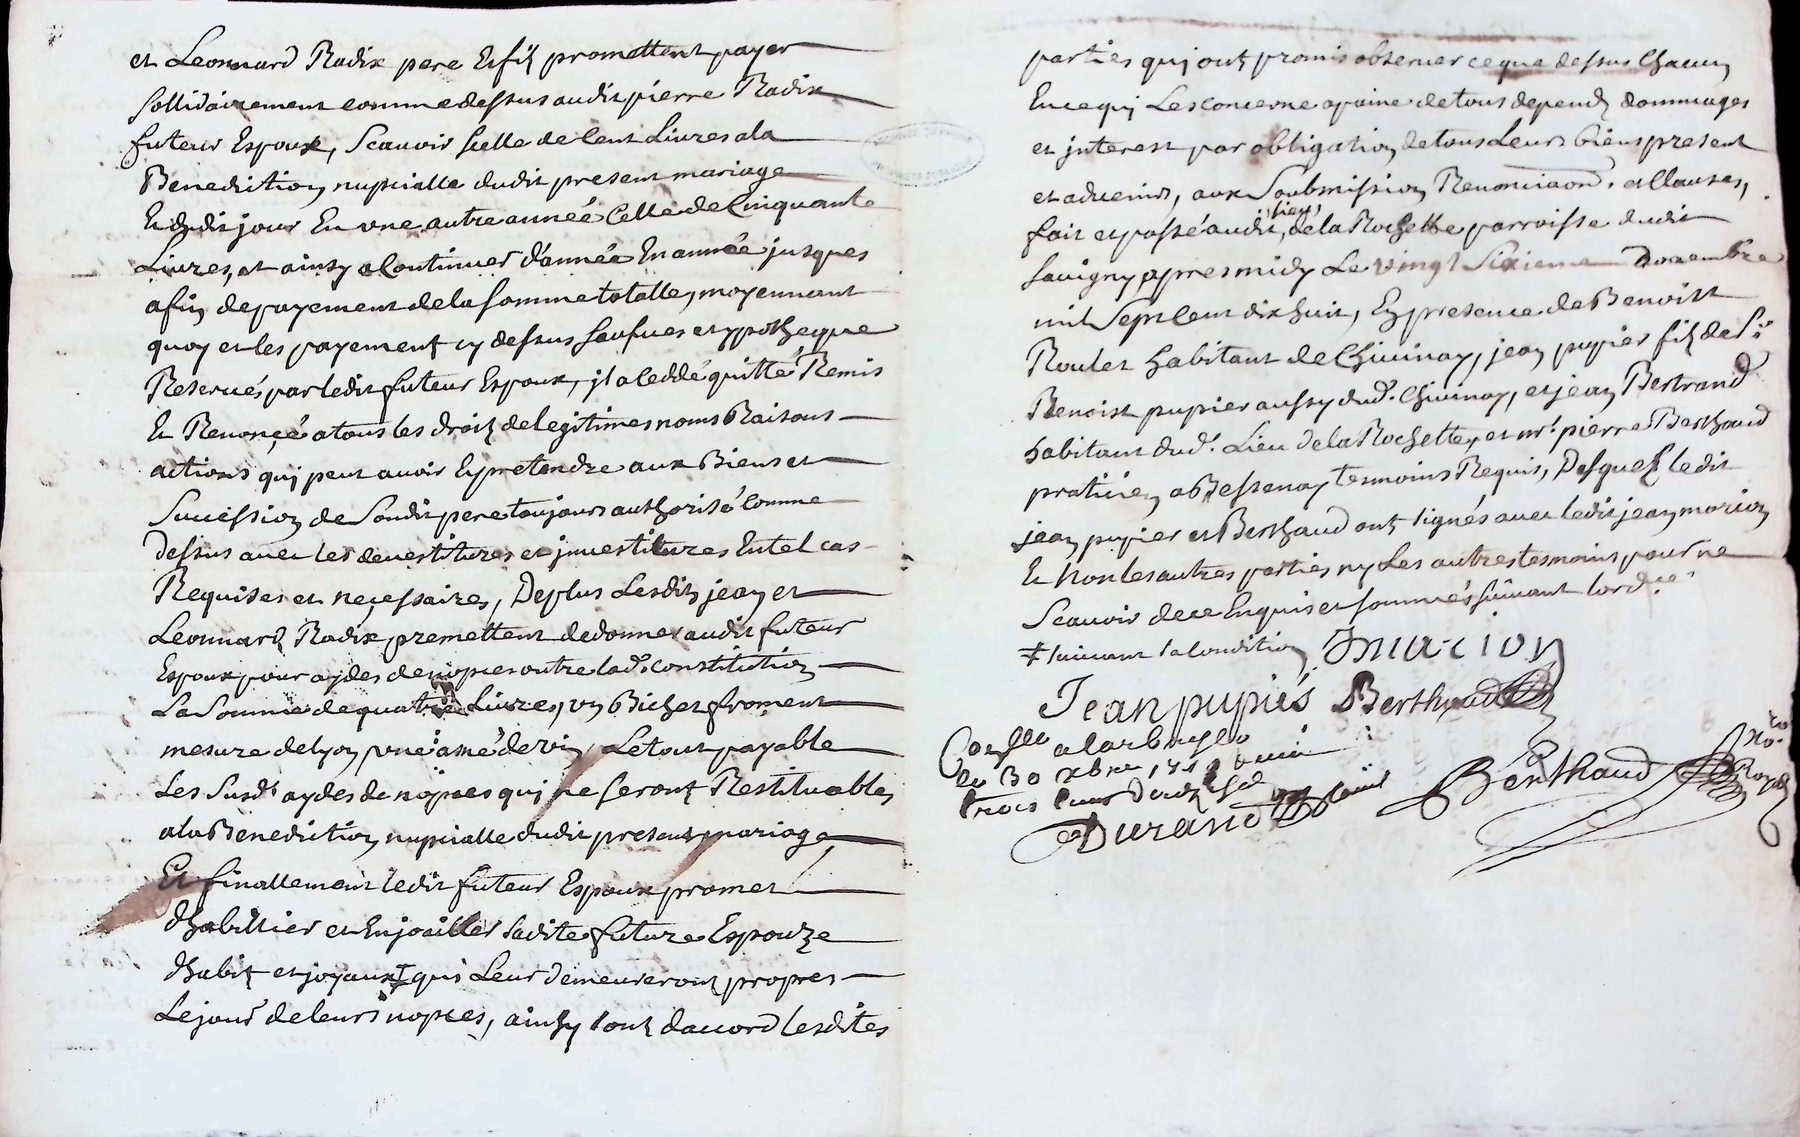 et Leonnard Radix pere et filz promettent payer
sollidairement comme dessus audit pierre Radix
futeur Espoux, Scauoir celle de Cent Liures a la
Benediction nupcialle dudit present mariage
Et dudit jour En vne autre année Celle de Cinquante
Liures, et ainsy a Continuer d'année En année jusques
afin de payement de la somme totalle, moyennant
quoy et les payementz cy dessus saufues et ypotheque
Reserués par ledit futeur Espoux, jl a ceddé quitté Remis
Et Renonçé a tous les droitz de legitimes noms Raisons
actions quj peut auoir Ey pretendre aux Biens et
Succession de Sondit pere toujours authorisé Comme
dessus auec les deuestitures et jnuestitures En tel cas
Requises et neçessaires, De plus Lesditz jean et
Leonnard Radix premettent de donner audit futeur
Espoux pour aydes de nopces outre lad. constitution
La Somme de quatre Liures, vn Bichet froment
mesure de Lyon vne amé de vin Le tout payable
Les Susdt aydes de nopces quj ne seront Restituables
a la Benediction nupcialle dudit present mariage
Et finallement ledit futeur Espoux promet
d'habillier et Enjoailler sadite future Espouze
d'habitz et joyaux ‡ qui Leur demeureront propres
Le jour de leurs nopces, ainsy sont d'accord lesdites
parties quj ont promis obseruer ce que dessus Chacun
En ce quj Les Concerne a paine de tous dependz dommages
et jnterest par obligation de tous Leurs biens present
et aduenir, aux Soubmission Renonciaon. et Clauses,
fait et passé audit lieu, de la Rochette parroisse dudit
Sauigny apres midy Le vingt Sixieme Nouembre
mil Sept Cent dix huit, En presence de Benoist
Roulet habitant de Chiuinay, jean pupier filz de Sr
Benoist pupier aussy dud. Chiuinay, et jean Bertrand
habitant dud. Lieu de la Rochette, et mr. pierre Berthaud
praticien a Bessenay tesmoins Requis, Desquelz ledit
jean pupier et Berthaud ont signés auec ledit jean morion
Et Non les autres parties ny Les autres tesmoins pour ne
Scauoir de ce Enquis et sommés suiuant l'ord.ce
‡ suiuant sa Condition Jmarion
Jean pupiés Berthaud
Con.lle a Larbresle
le 30 xbre 1718
trois liures
Durand
Berthaud
No.re
Royal